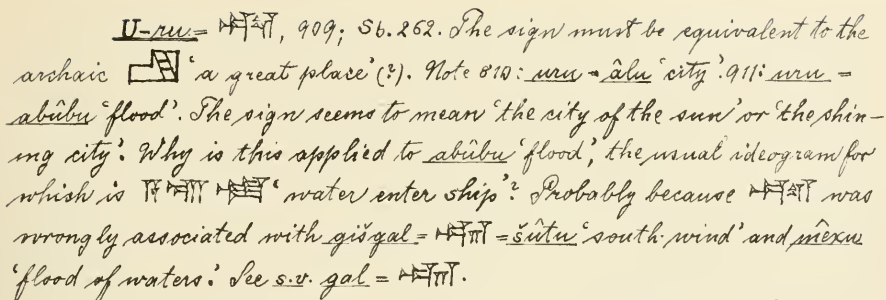 U-ru = , 909; Sb. 262. The sign must be equivalent to the
archaic 'a great place' (?). Note : uru = âlu 'city'. 911: uru =
abûbu 'flood'. The sign seems to mean 'the city of the sun' or 'the shin-
ing city'. Why is this applied to abûbu 'flood', the usual ideogram for
which is 'water enter ship'? Probably because was
wrongly associated with gišgal = = šûtu 'south-wind' and mêxu
'flood of waters'. See s.v. gal = .